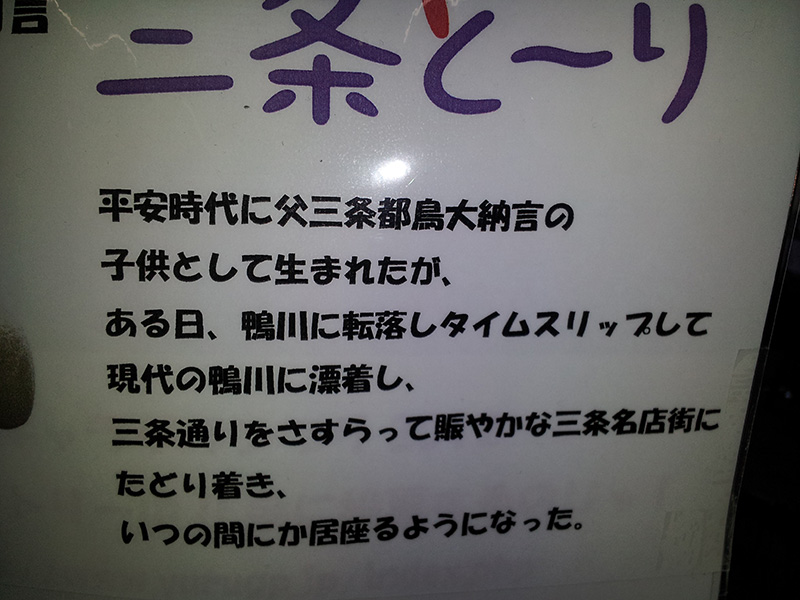 言
三条と〜り
平安時代に父三条都鳥大納言の
子供として生まれたが、
ある日、鴨川に転落しタイムスリップして
現代の鴨川に漂着し、
三条通りをさすらって賑やかな三条名店街に
たどり着き、
いつの間にか居座るようになった。